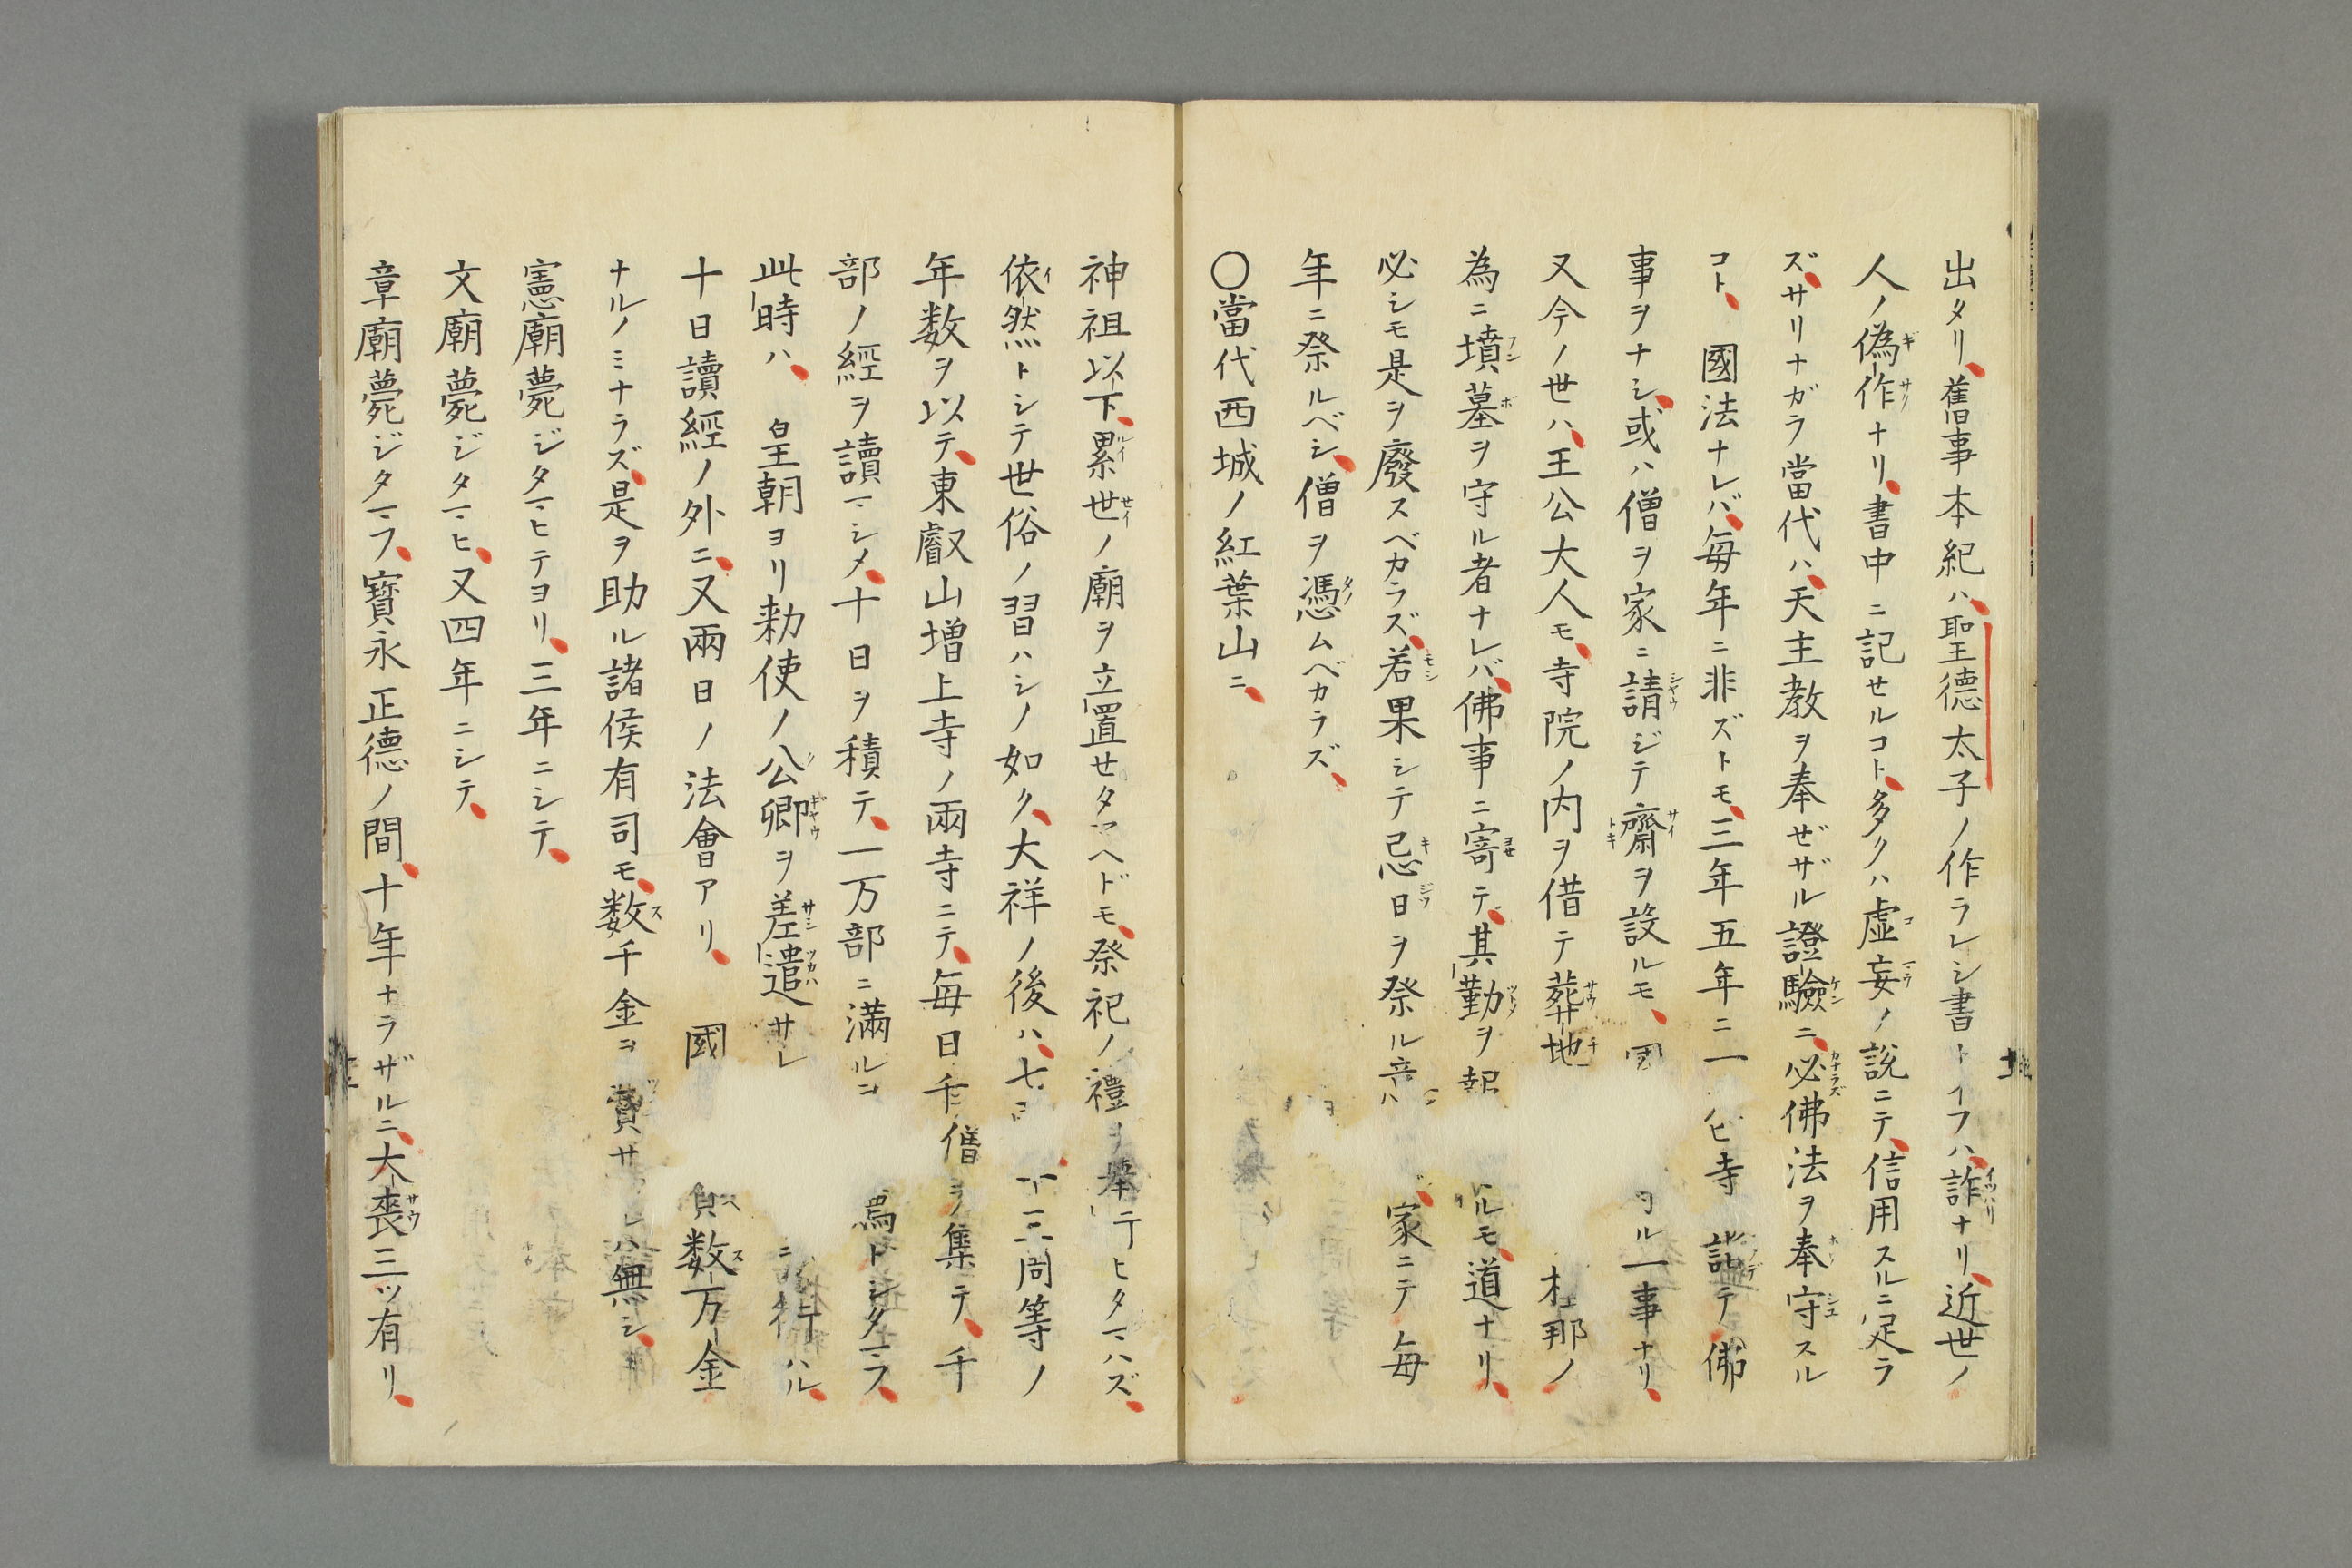 出タリ、舊事本紀ハ、聖德太子ノ作ラレシ書トイフハ、詐ナリ、近世ノ
人ノ偽作ナリ、書中ニ記セルコト、多クハ虚妄ノ説ニテ、信用スルニ足ラ
ズ、サリナガラ當代ハ、天主教ヲ奉ゼザル證驗ニ、必佛法ヲ奉守スル
コト、國法ナレバ、毎年ニ非ズトモ、三年五年ニ一 寺 詣テ、佛
事ヲナシ、或ハ僧ヲ家ニ請ジテ齋ヲ設ルモ、 ル一事ナリ、
又今ノ世ハ、王公大人モ、寺院ノ内ヲ借テ葬地 那ノ
為ニ墳墓ヲ守ル者ナレバ、佛事ニ寄テ、其勤ヲ報 ルモ、道ナリ、
必シモ是ヲ廢スベカラズ、若果シテ忌日ヲ祭ル 家ニテ毎
年ニ祭ルベシ、僧ヲ憑ムベカラズ、
〇當代西城ノ紅葉山ニ、
神祖以下、累世ノ廟ヲ立置セタマヘドモ、祭祀ノ禮ヲ舉行ヒタマハズ、
依然トシテ世俗ノ習ハシノ如ク、大祥ノ後ハ、七 十三周等ノ
年数ヲ以テ、東叡山増上寺ノ兩寺ニテ、毎日千僧ヲ集テ、千
部ノ經ヲ讀マシメ、十日ヲ積テ、一万部ニ満ルコ 爲トシタマフ、
此時ハ、皇朝ヨリ勅使ノ公卿ヲ差遣サレ 行ハル、
十日讀經ノ外ニ、又兩日ノ法會アリ、國 数万金
ナルノミナラズ、是ヲ助ル諸侯有司モ、数千金ヲ費サ ハ無シ、
憲廟薨ジタマヒテヨリ、三年ニシテ、
文廟薨ジタマヒ、又四年ニシテ、
章廟薨ジタマフ、寶永正德ノ間、十年ナラザルニ、大喪三ツ有リ、